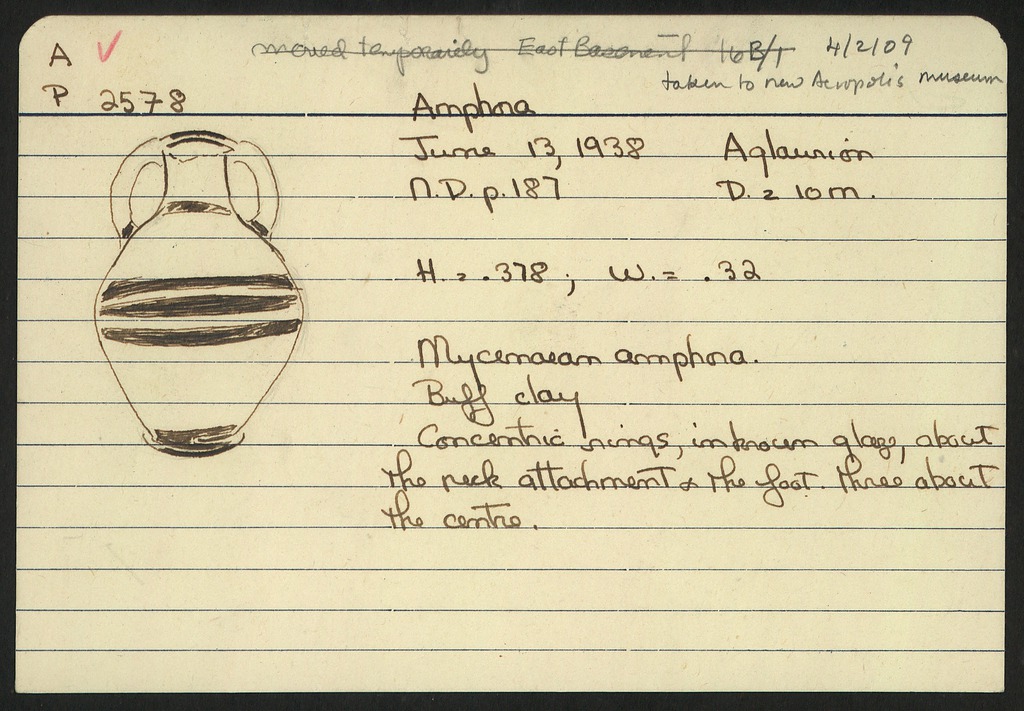 A ✓ moved temporarily East Basement 16B/1 4/2/09
taken to new Acropolis museum
P 2578 Amphora
June 13, 1938 Aglaurion
N.D. p. 187 D. = 10 m.
H. = .378 ; W. = .32
Mycenaean amphora.
Buff clay
Concentric rings, in brown glaze, about
the neck attachment & the foot. three about
the centre.